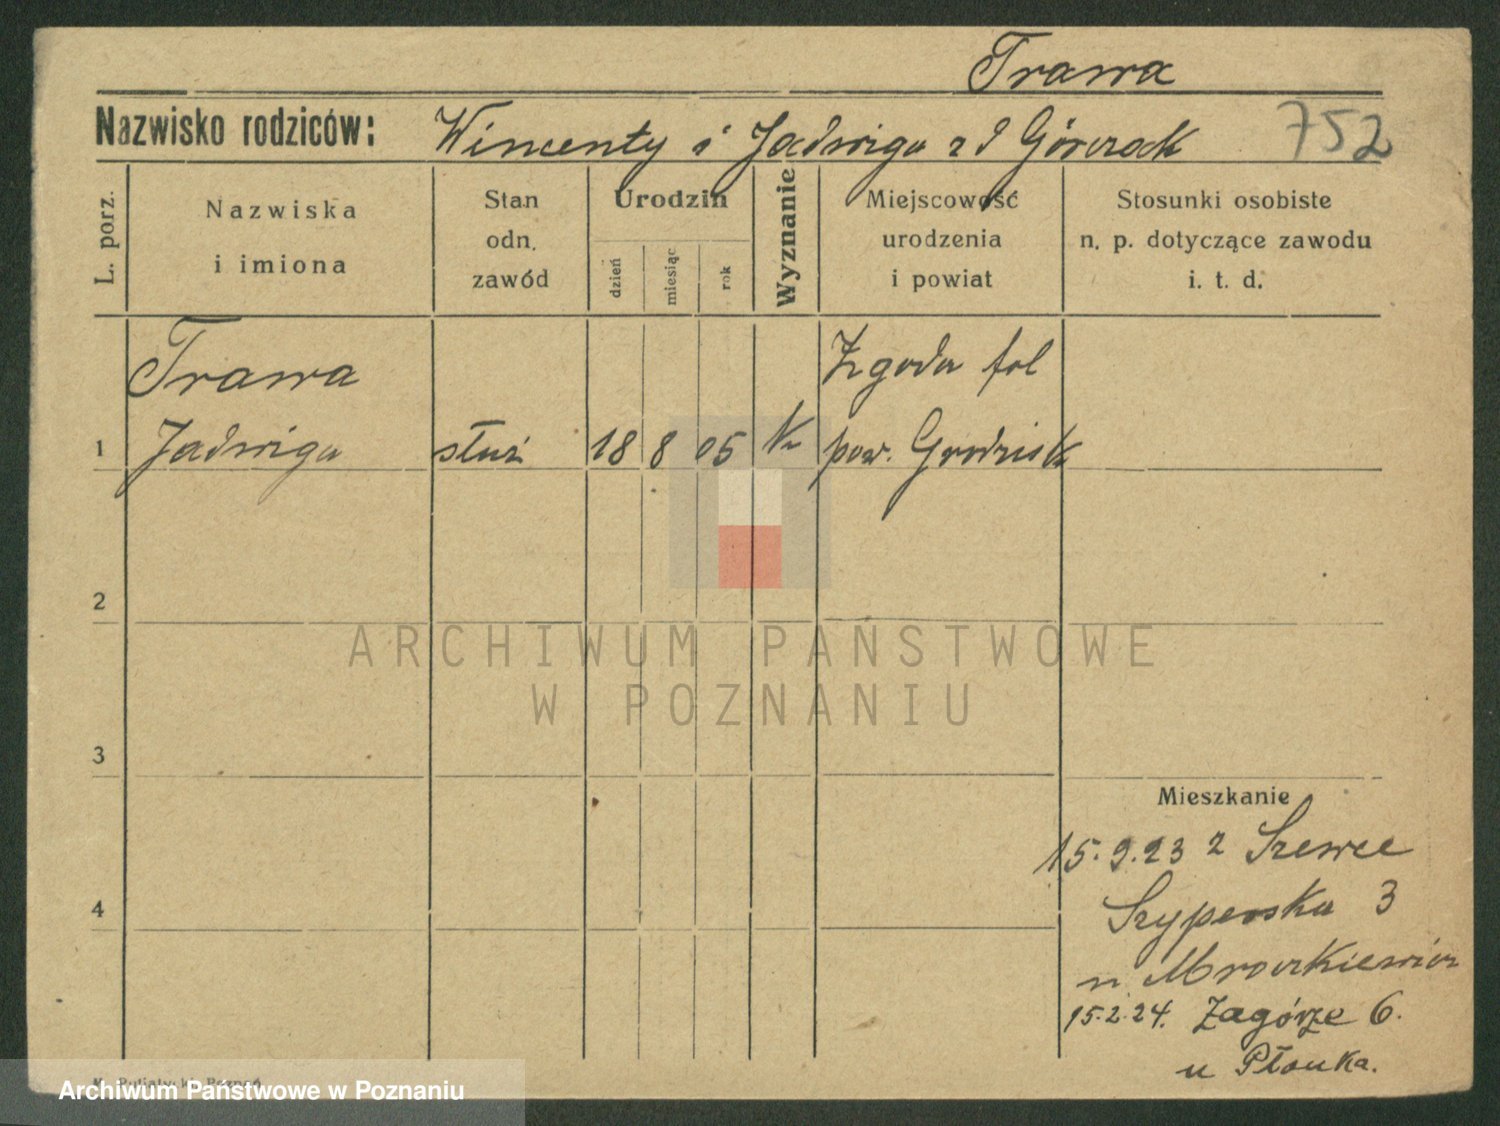 Trawa
Nazwisko rodziców: Wincenty i Jadwiga z d Górczak 752
L. porz.
Nazwiska
i imiona
Stan
odn.
zawód
Urodzin
dzień
miesiąc
rok
Wyznanie
Miejscowość
urodzenia
i powiat
Stosunki osobiste
n. p. dotyczące zawodu
i. t. d.
Trawa Zgoda fol
1 Jadwiga służ 18 8 05 pow. Grodzisk
2
ARCHIWUM PAŃSTWOWE
W POZNANIU
3
Mieszkanie
15.9.23 z Szewce
4 Szyperska 3
u Mroczkiewicz
15.2.24. Zagórze 6.
u Płonka.
Archiwum Państwowe w Poznaniu